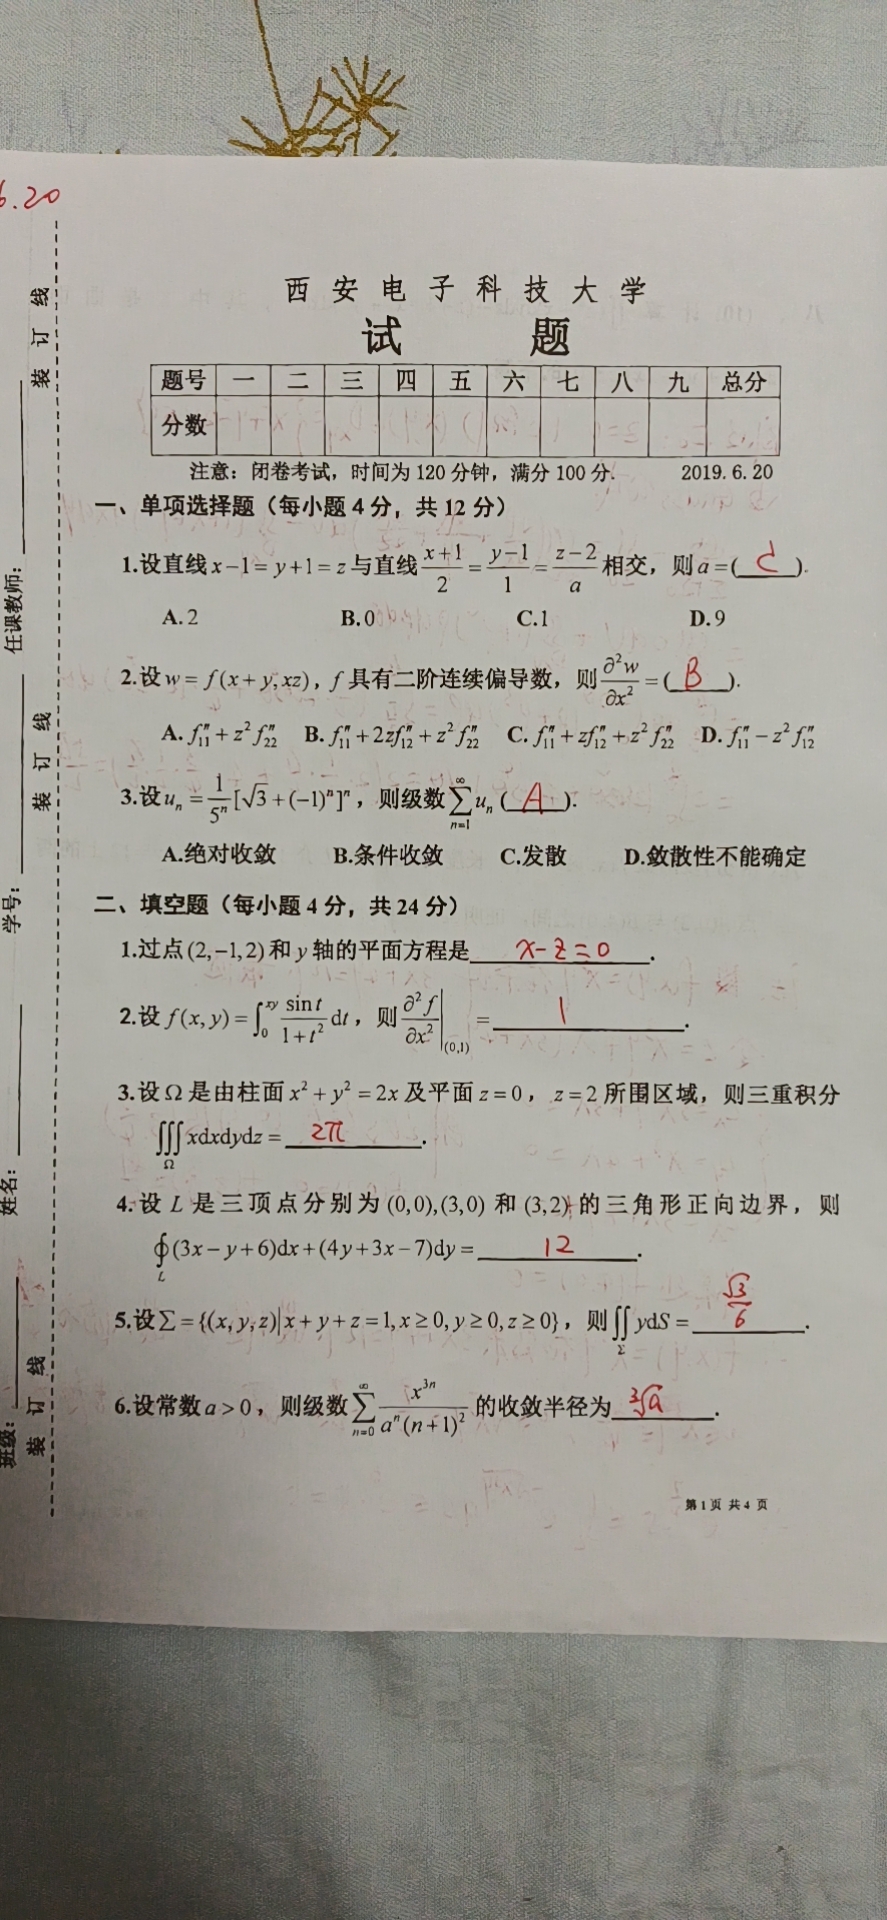 6.20
西安电子科技大学
试 题
题号 一 二 三 四 五 六 七 八 九 总分
分数
注意：闭卷考试，时间为 120 分钟，满分 100 分. 2019.6.20
一、单项选择题（每小题 4 分，共 12 分）
1.设直线 x−1=y+1=z 与直线 (x+1)/2=(y−1)/1=(z−2)/a 相交，则 a=( C ).
A. 2 B. 0 C. 1 D. 9
2.设 w=f(x+y,xz)，f 具有二阶连续偏导数，则 ∂²w/∂x²=( B ).
A. f″₁₁+z²f″₂₂ B. f″₁₁+2zf″₁₂+z²f″₂₂ C. f″₁₁+zf″₁₂+z²f″₂₂ D. f″₁₁−z²f″₁₂
3.设 uₙ=1/5ⁿ[√3+(−1)ⁿ]ⁿ，则级数 ∑_{n=1}^{∞} uₙ ( A ).
A.绝对收敛 B.条件收敛 C.发散 D.敛散性不能确定
二、填空题（每小题 4 分，共 24 分）
1.过点(2,−1,2)和 y 轴的平面方程是 x−z=0 .
2.设 f(x,y)=∫₀^{xy} sin t/(1+t²) dt，则 ∂²f/∂x²|(0,1) = 1 .
3.设 Ω 是由柱面 x²+y²=2x 及平面 z=0，z=2 所围区域，则三重积分
∭_Ω xdxdydz= 2π .
4.设 L 是三顶点分别为 (0,0),(3,0) 和 (3,2) 的三角形正向边界，则
∮_L (3x−y+6)dx+(4y+3x−7)dy= 12 .
5.设 Σ={(x,y,z)|x+y+z=1,x≥0,y≥0,z≥0}，则 ∬_Σ ydS= √3/6 .
6.设常数 a>0，则级数 ∑_{n=0}^{∞} x^{3n}/(aⁿ(n+1)²) 的收敛半径为 ∛a .
第 1 页 共 4 页
班级： 姓名： 学号： 任课教师：
装 订 线 装 订 线 装 订 线